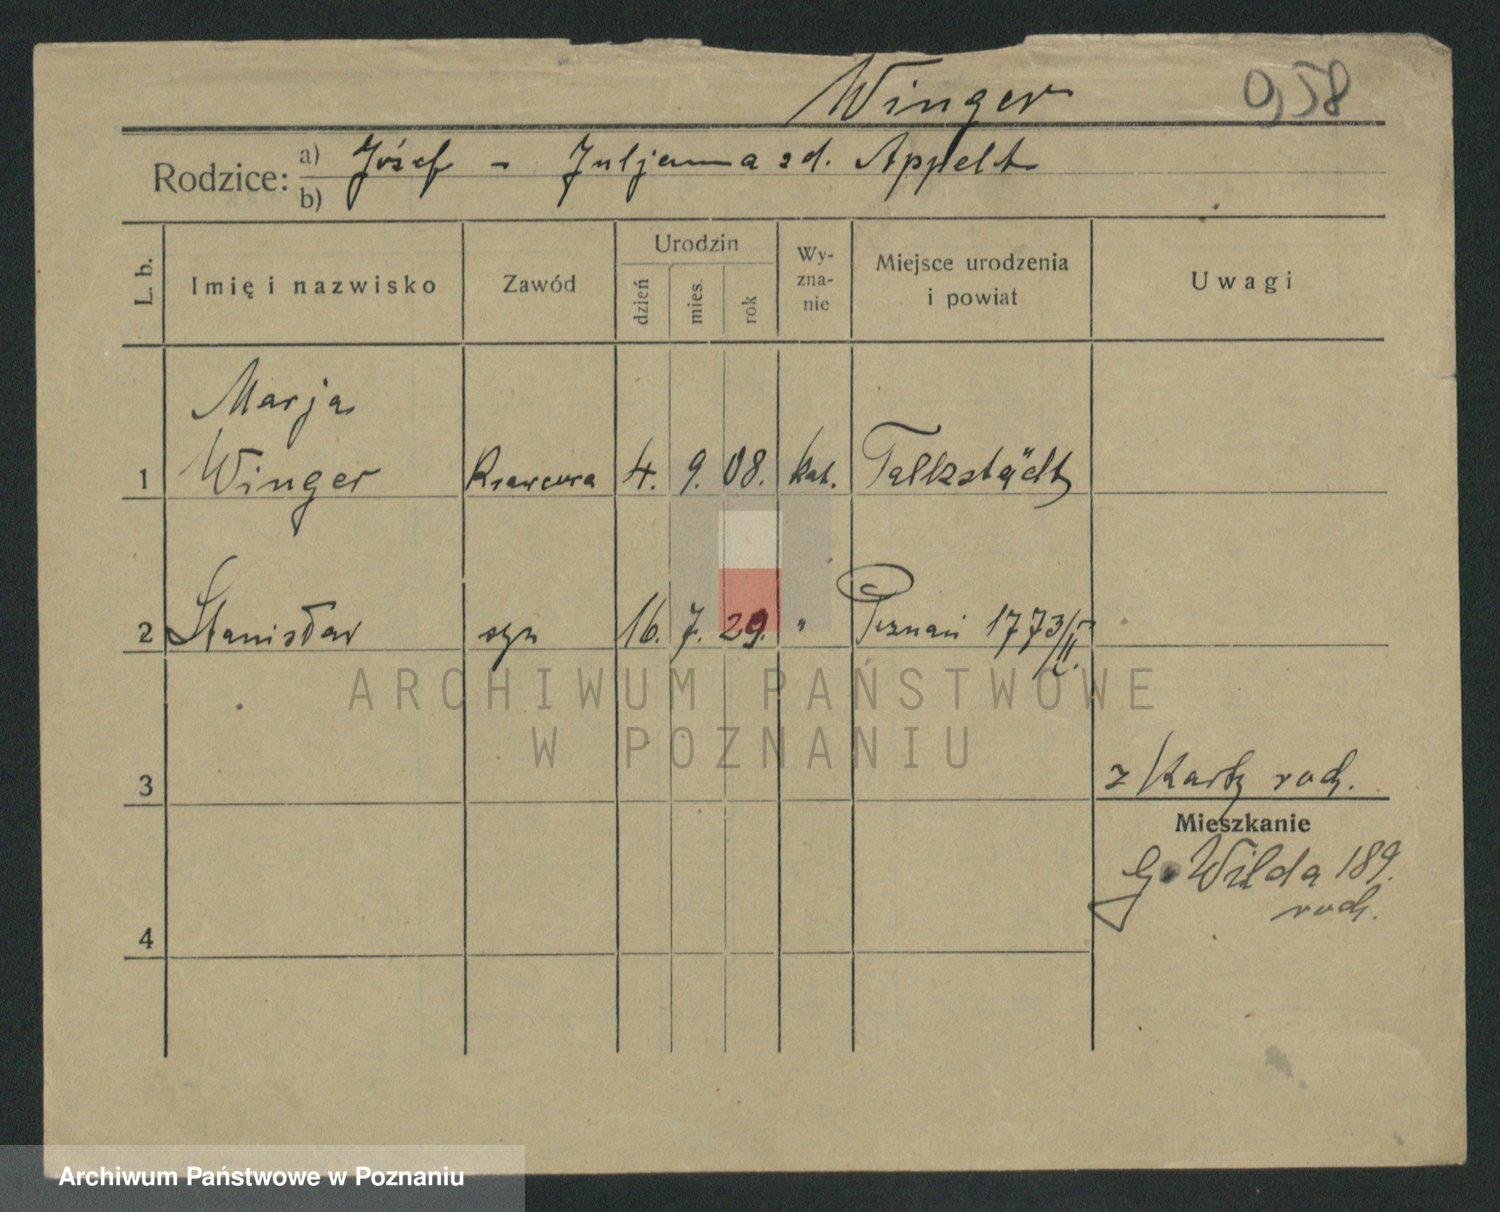 Winger 0,58
Rodzice: a) Józef - Juljanna zd. Appelt
b)
L. b. Imię i nazwisko Zawód Urodzin dzień mies. rok Wy-zna-nie Miejsce urodzenia i powiat Uwagi
Marja
1 Winger Krawcowa 4. 9. 08. kat. Falkstädt
2 Stanisław syn 16. 7. 29. " Poznań 1773/II.
ARCHIWUM PAŃSTWOWE
W POZNANIU
3 z Karty rodz.
Mieszkanie
G. Wilda 189.
rodz.
4
Archiwum Państwowe w Poznaniu